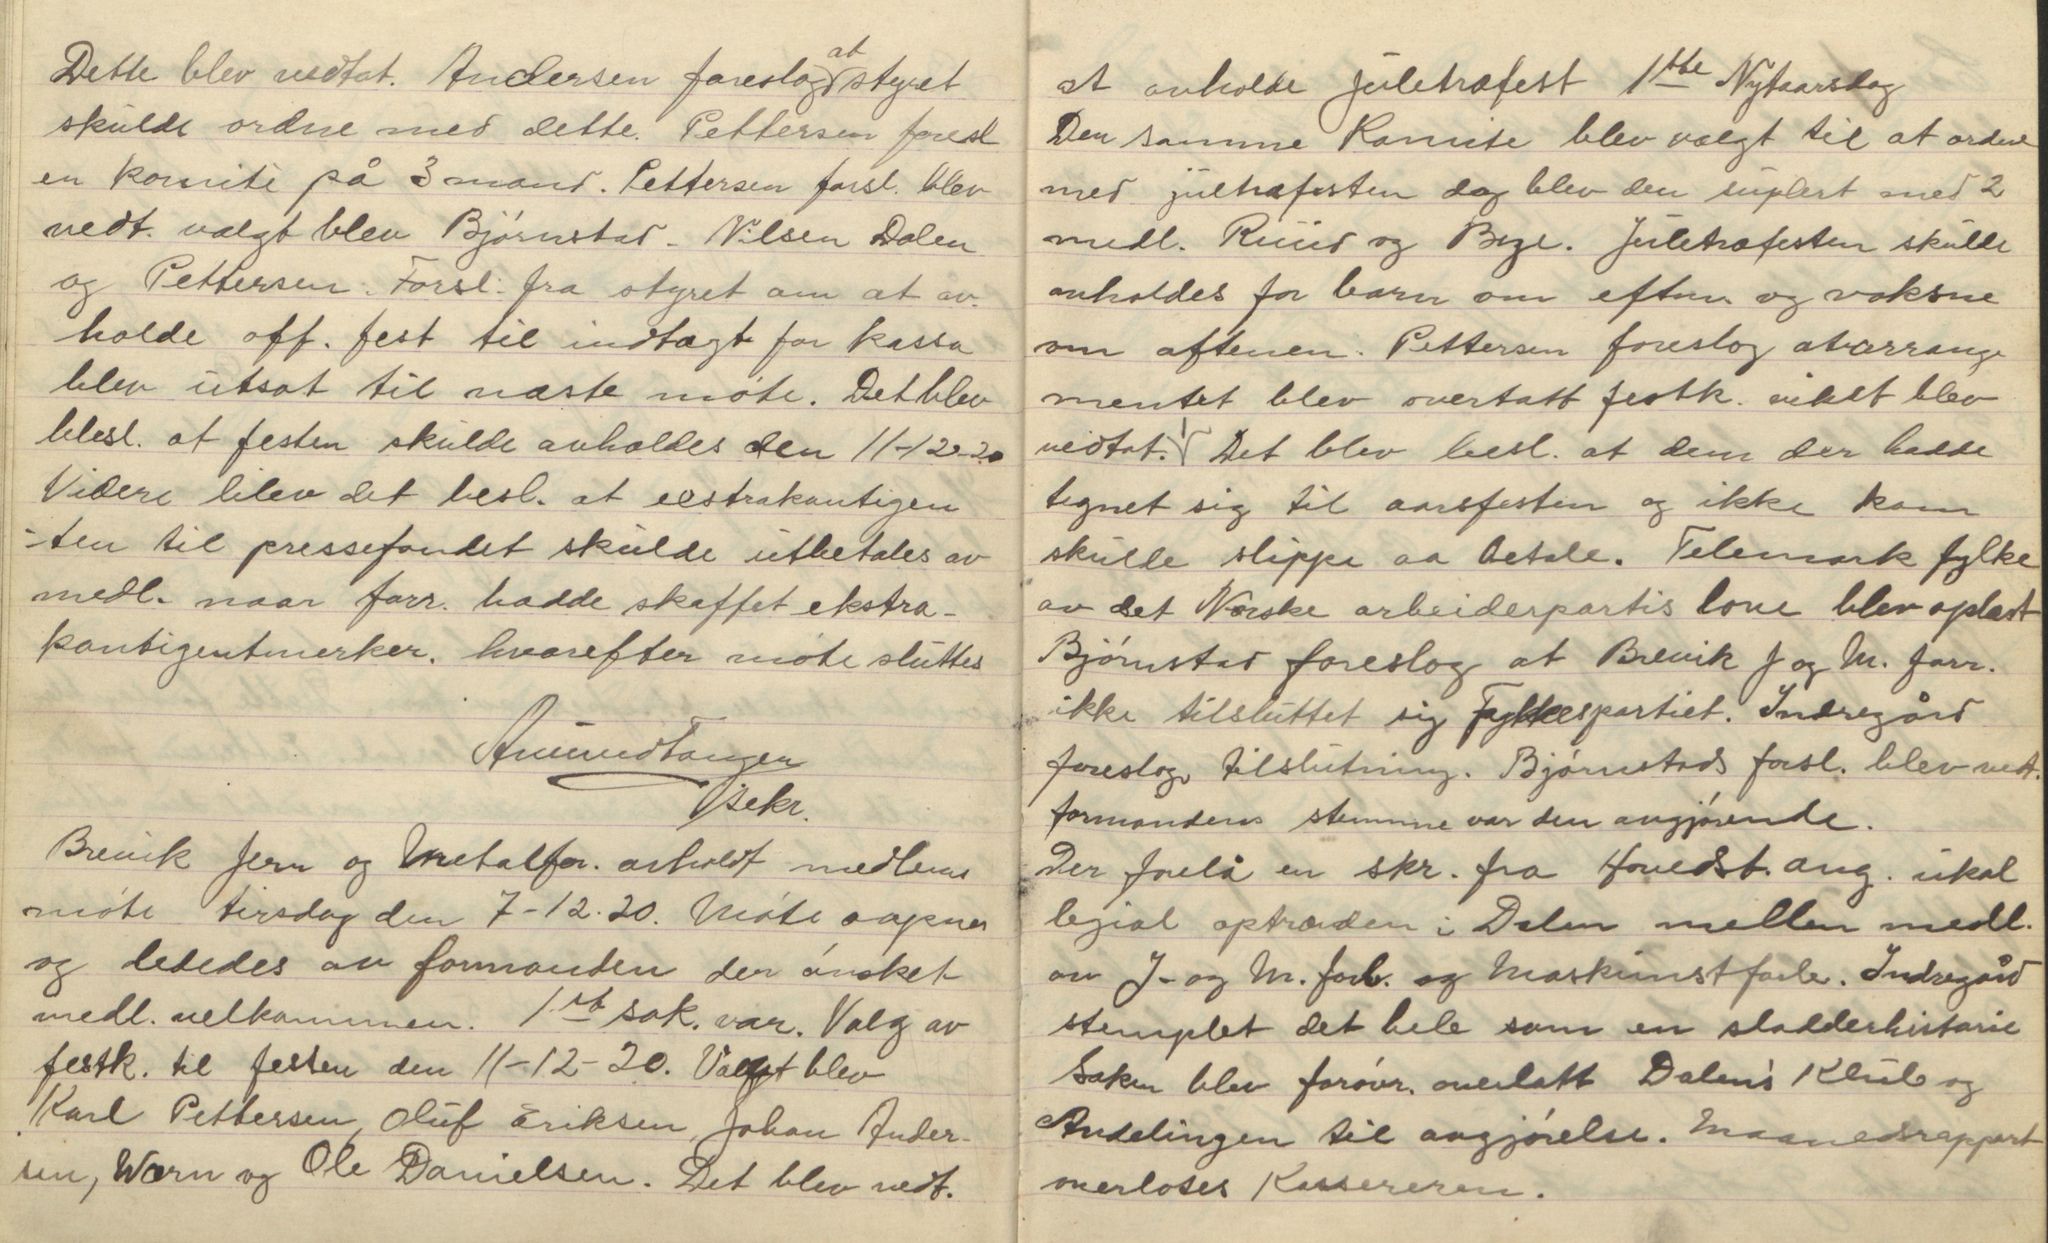 Dette blev vedtat. Andersen foreslog at styret
skulde ordne med dette. Pettersen foresl
en komitè på 3 mand. Pettersen forsl. blev
vedt. valgt blev Bjørnstad - Nilsen Dalen
og Pettersen. Forsl. fra styret om at av-
holde off. fest til indtægt for kassa
blev utsat til næste møte. Det blev
besl. at festen skulde avholdes den 11-12-20
Videre blev det besl. at eestrakontigen
-ten til pressefondet skulde utbetales av
medl. naar forr. hadde skaffet ekstra-
kontigentmerker. hvorefter møte sluttes
Amundtangen
sekr.
Brevik Jern og Metalfor. avholdt medlems
møte tirsdag den 7-12-20. Møte aapnes
og lededes av formanden der ønsket
medl. velkommen. 1ste sak. var. Valg av
festk. til festen den 11-12-20. Valgt blev
Karl Pettersen, Oluf Eriksen, Johan Ander-
sen, Worn og Ole Danielsen. Det blev vedt.
at avholde juletræfest 1ste Nytaarsdag
Den samme Komite blev valgt til at ordne
med jultræfesten dog blev den suplert med 2
medl. Ruud og Bge. Juletræfesten skulle
avholdes for barn om efterm. og voksne
om aftenen. Pettersen foreslog at arrange
mentet blev overtatt festk. vikét blev
vedtat. Det blev besl. at dem der hadde
tegnet sig til aarsfesten og ikke kom
skulle slippe aa betale. Telemark fylke
av det Norske arbeiderpartis love blev oplæst
Bjørnstad foreslog at Brevik J og M. forr.
ikke tilsluttet sig Fylkespartiet. Indregård
foreslog tilslutning. Bjørnstads forsl. blev vedt.
formandens stemme var den avgjørende.
Der forelå en skr. fra Hovedst. ang. ukol
legial optræden i Dalen mellem medl.
av J- og M. forb. og Maskinistforb. Indregård
stemplet det hele som en sladderhistorie
Saken blev forøvr. overlatt Dalens Klub og
Avdelingen til avgjørelse. Maanedsrapport
overloses Kassereren.